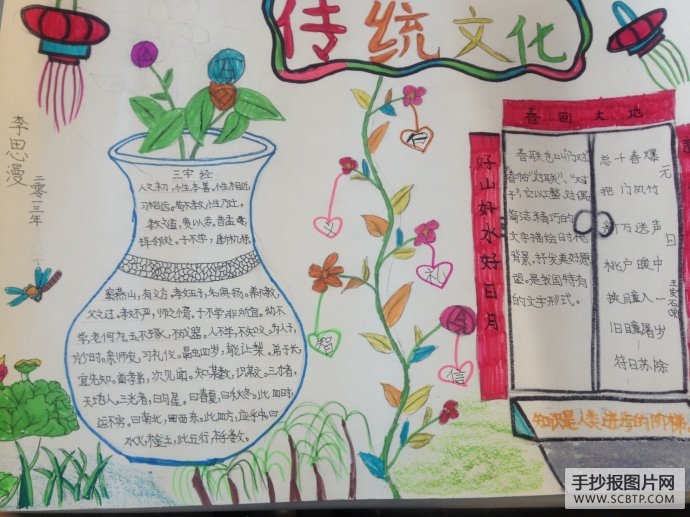 传统文化
李思漫
二零一三年
三字经
人之初,性本善。性相近
习相远。苟不教,性乃迁。
教之道,贵以专。昔孟母,
择邻处。子不学,断机杼。
窦燕山,有义方。教五子,名俱扬。养不教,
父之过。教不严,师之惰。子不学,非所宜。幼不
学,老何为。玉不琢,不成器。人不学,不知义。为人子,
方少时。亲师友,习礼仪。
能让梨。弟于长,
宜先知。首孝弟,次见闻。知某数,识某文。
三光者,日月星。曰春夏,曰秋冬。此四时,
运不穷。曰南北,曰西东。此四方,应乎中。曰
水火,木金土,此五行,本乎数。
仁
义
礼
智
信
春回大地
好山好水好日月
春联也叫门对
春帖,“对联”、“对
子”,它以工整、对偶
简洁、精巧的
文字描绘时代
背景,抒发美好愿
望。是我国特有
的文字形式。
元日
王安石
爆竹声中一岁除
春风送暖入屠苏
千门万户曈曈日
总把新桃换旧符
知识是人类进步的阶梯
手抄报图片网
WWW.SCBTP.COM